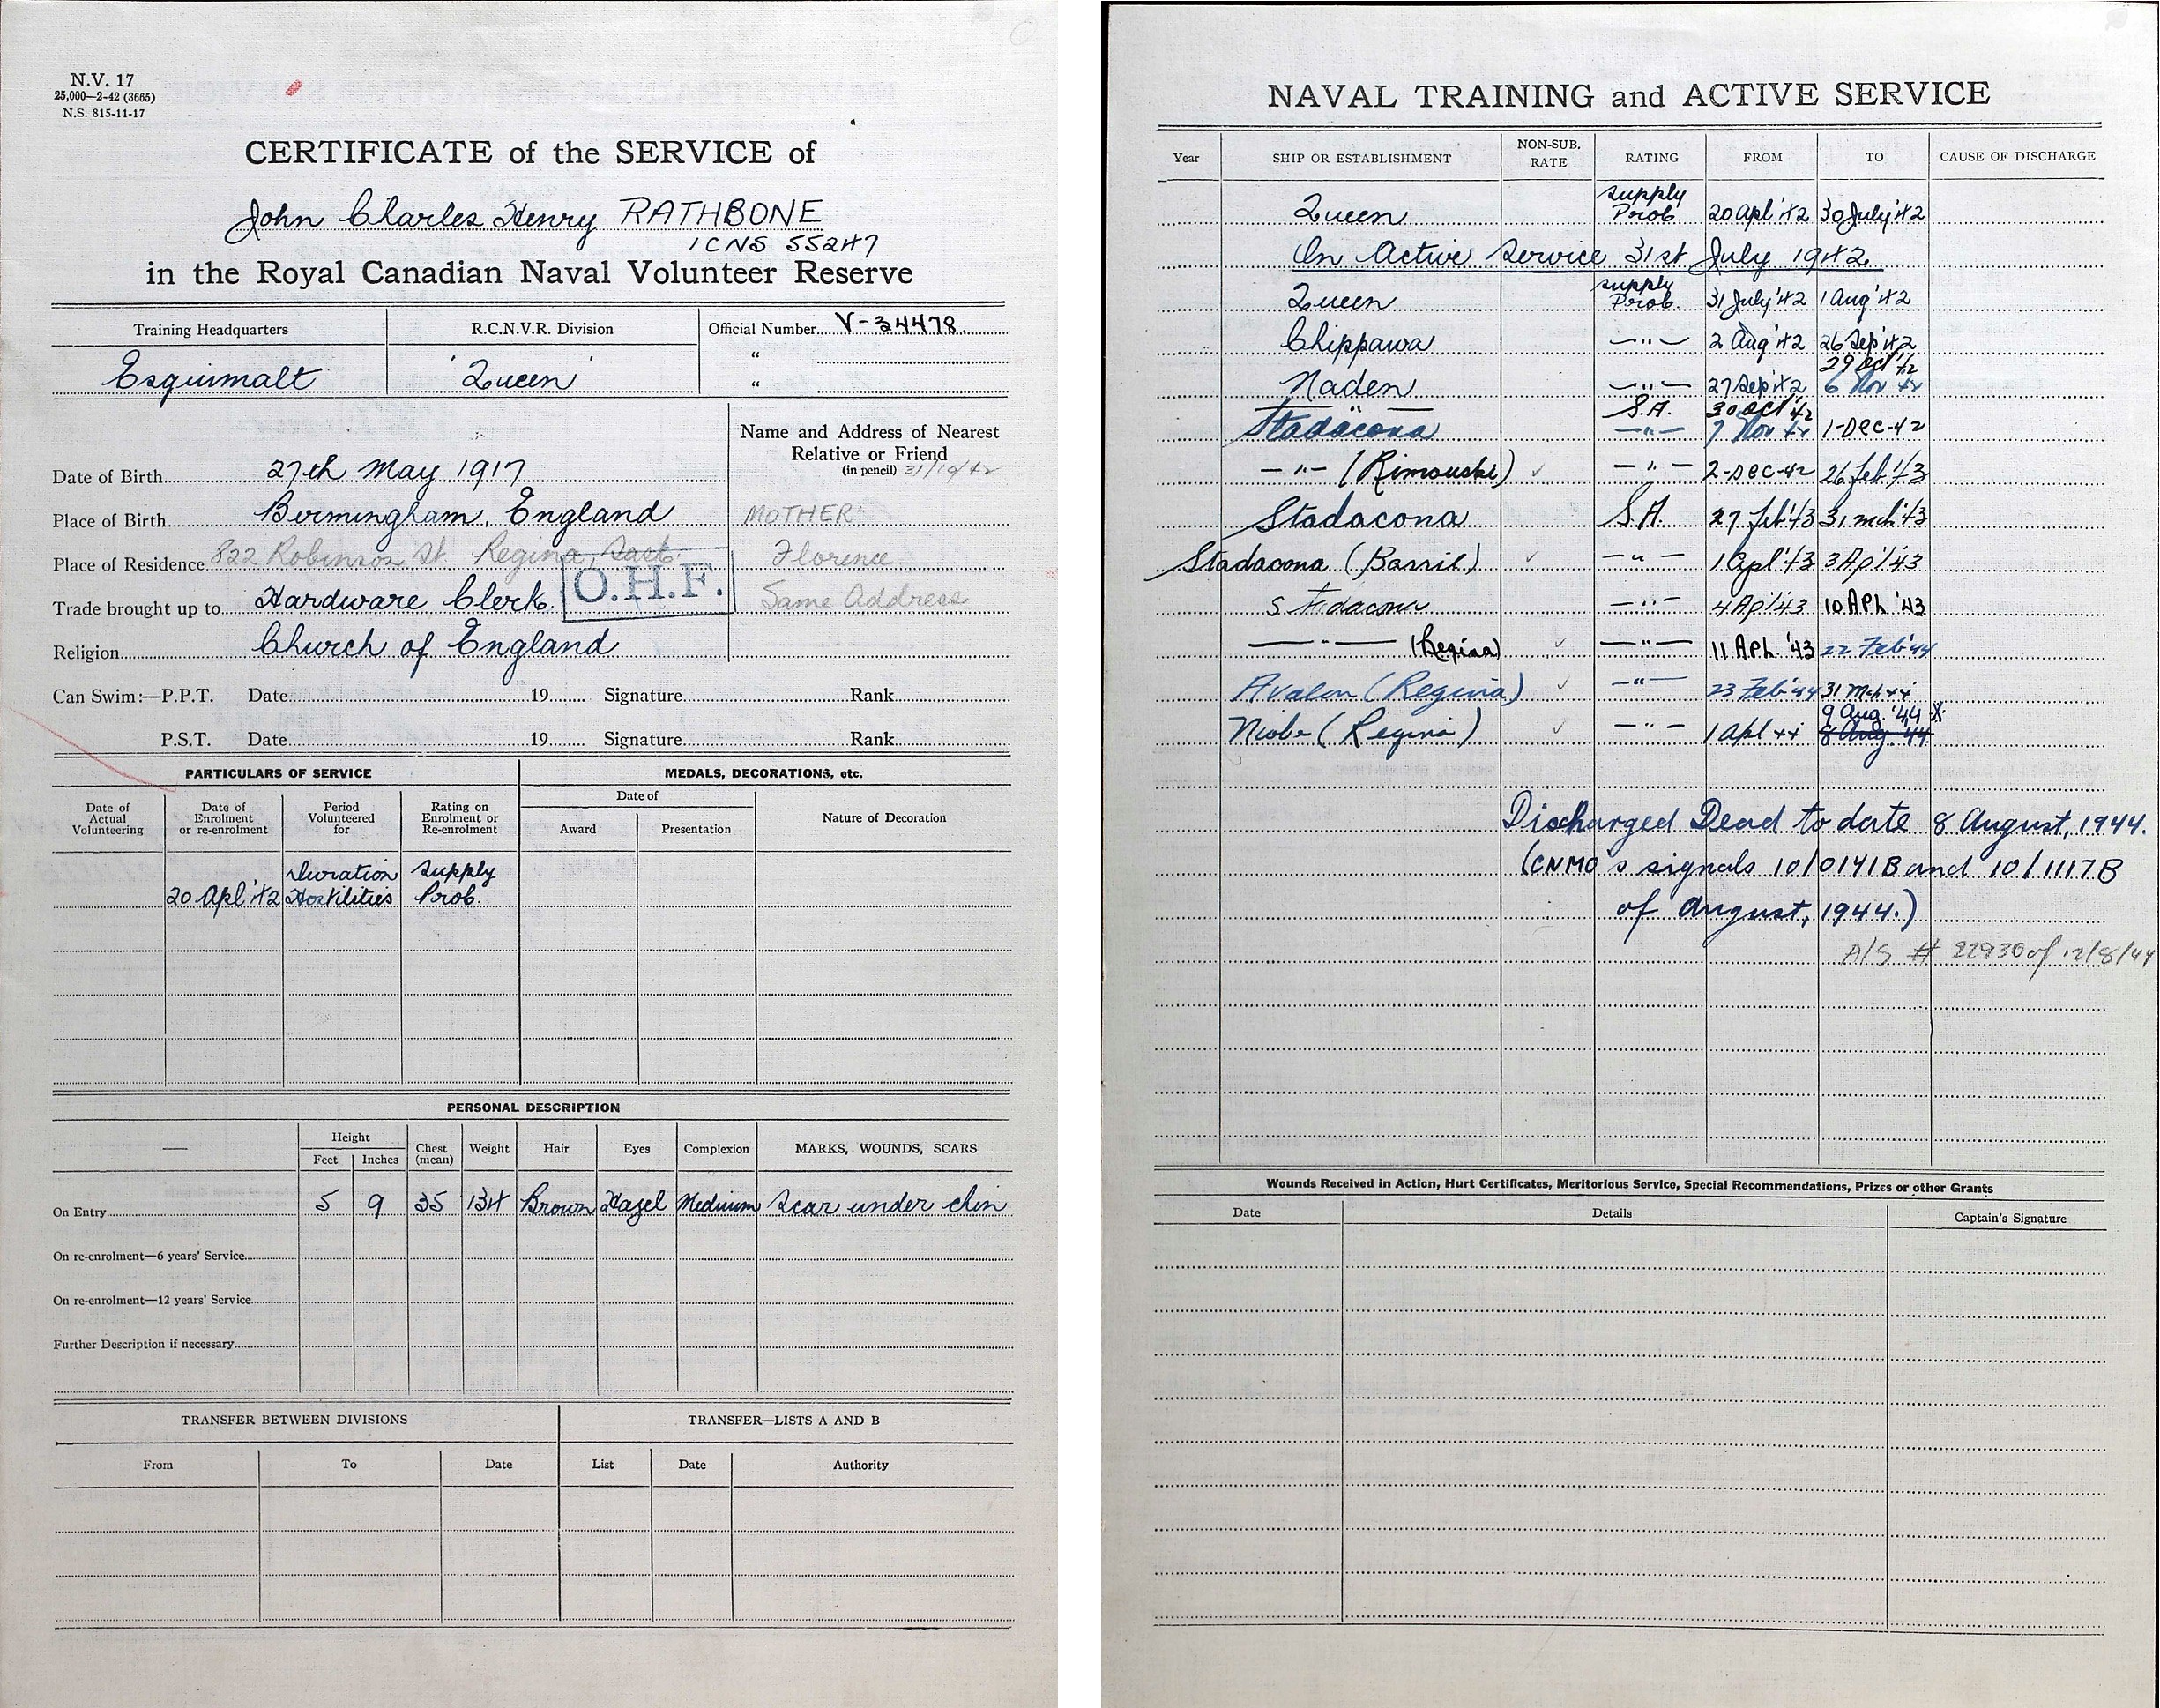 N.V. 17
25,000—2-42 (3665)
N.S. 815-11-17
CERTIFICATE of the SERVICE of
John Charles Henry RATHBONE
ICNS 55247
in the Royal Canadian Naval Volunteer Reserve
Training Headquarters R.C.N.V.R. Division Official Number V-34478
"
Esquimalt 'Queen' "
Name and Address of Nearest Relative or Friend
(in pencil) 31/10/42
Date of Birth 27th May 1917
Place of Birth Birmingham, England MOTHER
Place of Residence 822 Robinson St Regina, Sask. Florence
Trade brought up to Hardware Clerk O.H.F. Same Address
Religion Church of England
Can Swim:—P.P.T. Date 19 Signature Rank
P.S.T. Date 19 Signature Rank
PARTICULARS OF SERVICE MEDALS, DECORATIONS, etc.
Date of Actual Volunteering Date of Enrolment or re-enrolment Period Volunteered for Rating on Enrolment or Re-enrolment Date of Award Presentation Nature of Decoration
20 Apl '42 Duration Hostilities Supply Prob.
PERSONAL DESCRIPTION
— Height Feet Inches Chest (mean) Weight Hair Eyes Complexion MARKS, WOUNDS, SCARS
On Entry 5 9 35 134 Brown Hazel Medium Scar under chin
On re-enrolment—6 years' Service
On re-enrolment—12 years' Service
Further Description if necessary
TRANSFER BETWEEN DIVISIONS TRANSFER—LISTS A AND B
From To Date List Date Authority
NAVAL TRAINING and ACTIVE SERVICE
Year SHIP OR ESTABLISHMENT NON-SUB. RATE RATING FROM TO CAUSE OF DISCHARGE
Queen Supply Prob. 20 Apl '42 30 July '42
On Active Service 31st July 1942
Queen Supply Prob. 31 July '42 1 Aug '42
Chippawa —"— 2 Aug '42 26 Sep '42
29 Oct '42
Naden —"— 27 Sep '42 6 Nov 42
—"— S.A. 30 Oct '42
Stadacona —"— 7 Nov 42 1-DEC-42
—"— (Rimouski) ✓ —"— 2-DEC-42 26 Feb '43
Stadacona S.A. 27 Feb '43 31 Mch '43
Stadacona (Barrie) ✓ —"— 1 Apl '43 3 Apl '43
Stadacona —"— 4 Apl '43 10 APL '43
—"— (Regina) ✓ —"— 11 APL '43 22 Feb '44
Avalon (Regina) ✓ —"— 23 Feb '44 31 Mch 44
9 Aug. '44 X
Niobe (Regina) ✓ —"— 1 Apl 44 8 Aug. '44
Discharged Dead to date 8 August, 1944.
(CNMO's signals 10/0141B and 10/1117B
of August, 1944.)
A/S # 22930 of 12/8/44
Wounds Received in Action, Hurt Certificates, Meritorious Service, Special Recommendations, Prizes or other Grants
Date Details Captain's Signature